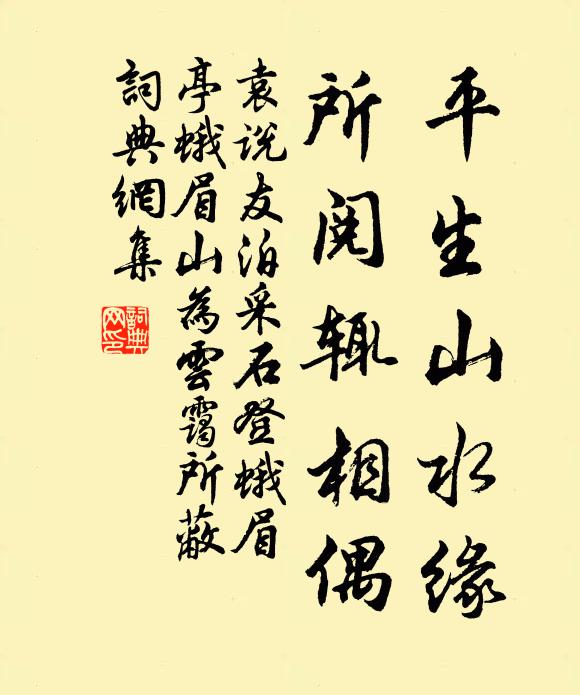 平生山水缘
所阅辄相偶
袁说友泊采石登蛾眉
亭蛾眉山為雲靄所蔽
詞典網集
詞典网印